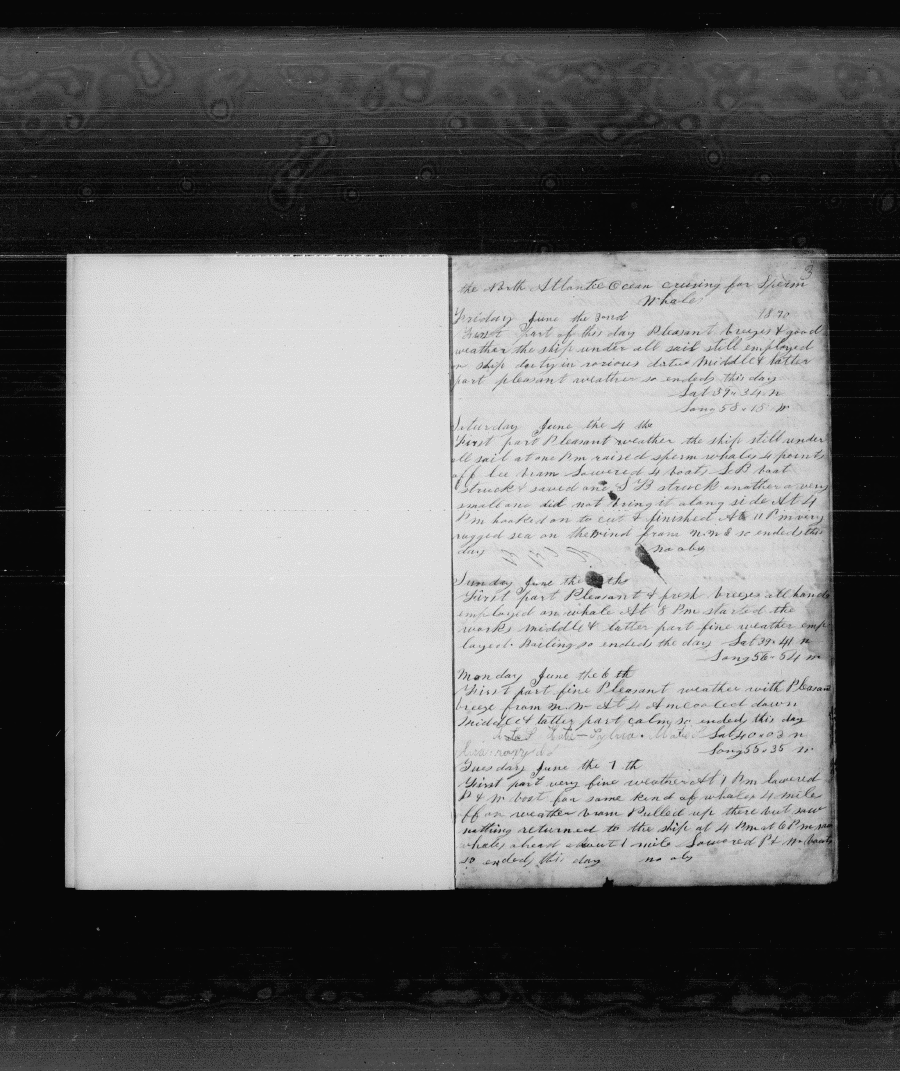 3
the North Atlantic Ocean cruising for Sperm
Whale
Friday June the 3ond 1870
First Part of this day Pleasant breezes & good
weather the ship under all sail still employed
in ship duty in various duties Middle & latter
part pleasant weather so ended this day
Lat 39 " 34 N
Long 58 " 15 W
Saturday June the 4 th
First part Pleasant weather the ship still under
all sail at one Pm raised sperm whales 4 points
off lee beam Lowered 4 boats S B boat
struck & saved one L B struck another a very
small one did not bring it along side At 4
Pm hooked on to cut & finished At 11 Pm very
rugged sea on the wind from N.N.E so ended this
day no obs
Sunday June the ths
First part Pleasant & fresh breezes all hands
employed on whale At 8 Pm started the
works middle & latter part fine weather emp
loyed Boiling so ended the day Lat 39 " 41 N
Long 56 " 54 W
Monday June the 6 th
First part fine Pleasant weather with Pleasant
breeze from N.W At 4 Am cooled down
Middle & latter part calm so ended this day
Lat 40 " 03 N
Long 55 " 35 W
Tuesday June the 7 th
First part very fine weather At 1 Pm lowered
P & W boat for some kind of whales 4 mile
off on weather beam Pulled up there but saw
nothing returned to the ship at 4 Pm at 6 Pm saw
whales ahead about 1 mile Lowered P & W boats
so ended this day no obs